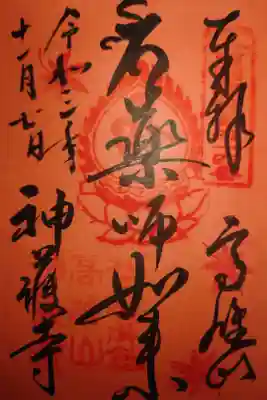 奉拝
高雄山
薬師如来
令和二年
十一月
神護寺